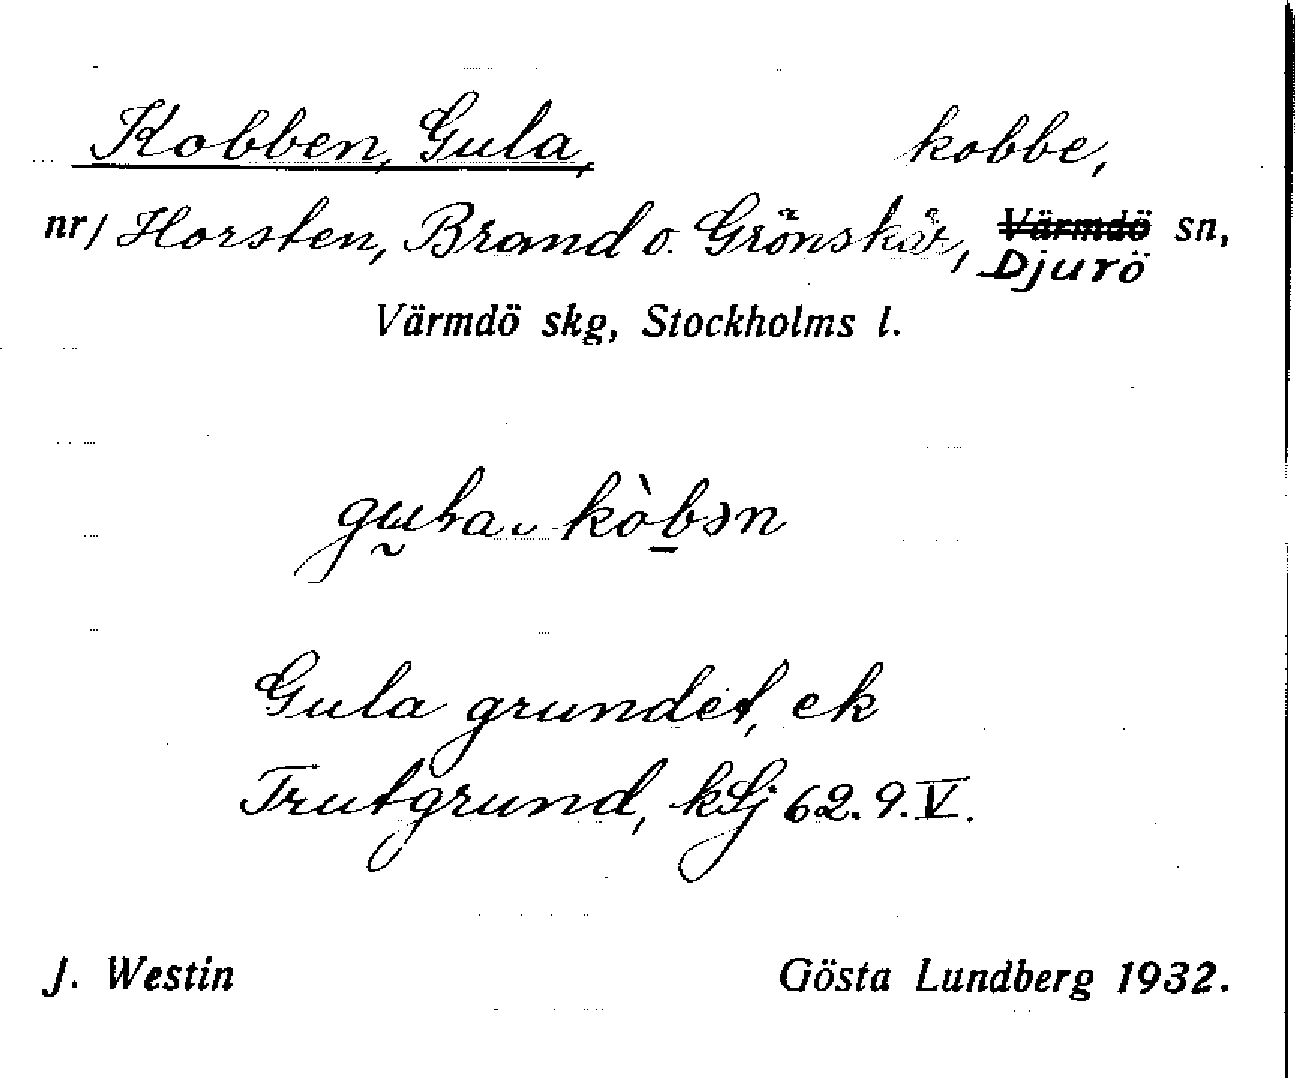 Kobben, Gula, kobbe,
nr/ Horsten, Brand o. Grönskär, Värmdö sn,
Djurö
Värmdö skg, Stockholms l.
kòbən
Gula grundet, ek
Trutgrund, kSj 62.9.V.
J. Westin Gösta Lundberg 1932.